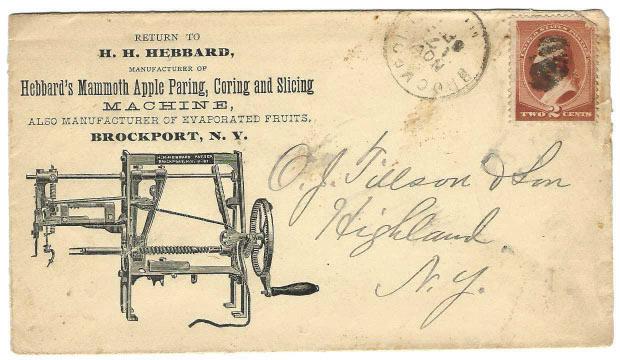 RETURN TO
H. H. HEBBARD,
MANUFACTURER OF
Hebbard's Mammoth Apple Paring, Coring and Slicing
MACHINE,
ALSO MANUFACTURER OF EVAPORATED FRUITS,
BROCKPORT, N. Y.
NOV
TWO 2 CENTS
O. J. Tillson & Son
Highland
N. Y.